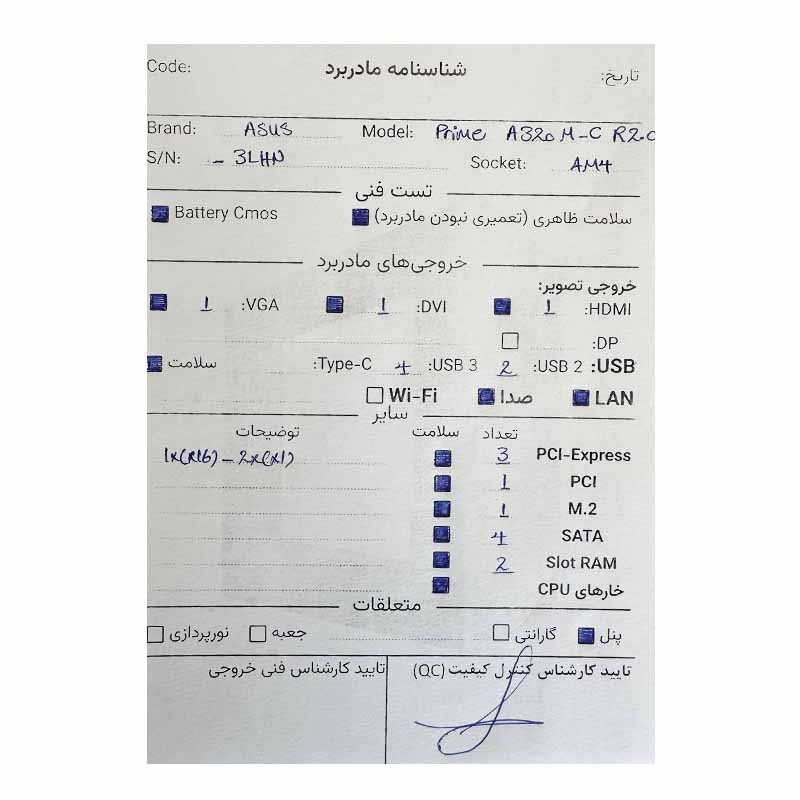 Code: شناسنامه مادربرد تاریخ:
Brand: ASUS Model: Prime A320M-C R2.0
S/N: - 3LHN Socket: AM4
تست فنی
سلامت ظاهری (تعمیری نبودن مادربرد) Battery Cmos
خروجی‌های مادربرد
خروجی تصویر:
HDMI: 1 DVI: 1 VGA: 1
DP:
USB: USB 2: 2 USB 3: 4 Type-C: سلامت
LAN صدا Wi-Fi
سایر
تعداد سلامت توضیحات
PCI-Express 3 1x(x16) - 2x(x1)
PCI 1
M.2 1
SATA 4
Slot RAM 2
خارهای CPU
متعلقات
پنل گارانتی جعبه نورپردازی
تایید کارشناس کنترل کیفیت (QC) تایید کارشناس فنی خروجی